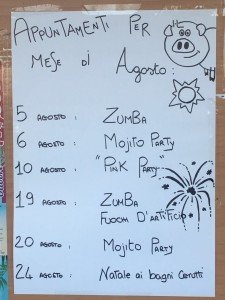 APPUNTAMENTI PER
MESE DI Agosto :
5 AGOSTO : ZUMBA
6 AGOSTO : MOJITO PARTY
10 AGOSTO : "PINK PARTY"
19 AGOSTO : ZUMBA
FUOCHI D'ARTIFICIO
20 AGOSTO : MOJITO PARTY
24 AGOSTO : NATALE ai bagni Cerutti